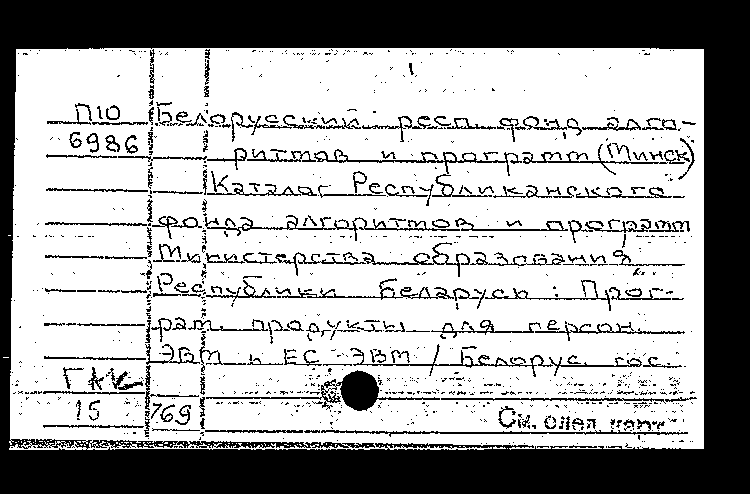 П10 Белорусский респ. фонд алго-
6986 ритмов и программ (Минск)
Каталог Республиканского
фонда алгоритмов и программ
Министерства образования
Республики Беларусь: Прог-
рам. продукты для персон.
ЭВМ и ЕС ЭВМ / Белорус. гос.
ГАК
15 769 См. след. карт.